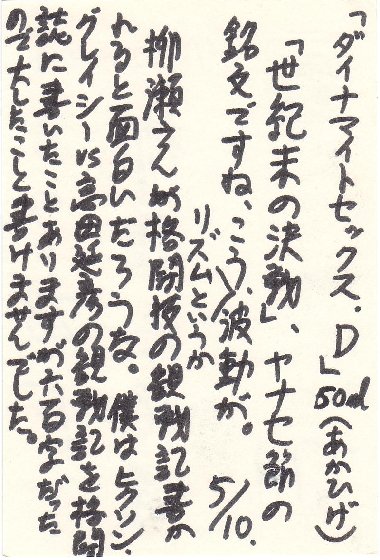 「ダイナマイトセックス・D」50ml(あかひげ)
「世紀末の決戦」、ヤナセ節の
銘文ですね、こういう波動が。
リズムというか
5/10.
柳瀬さんが格闘技の観戦記書か
れると面白いだろうな。僕はヒクソン・
グレイシーvs高田延彦の観戦記を格闘
誌に書いたことありますが六百字だった
ので大したこと書けませんでした。